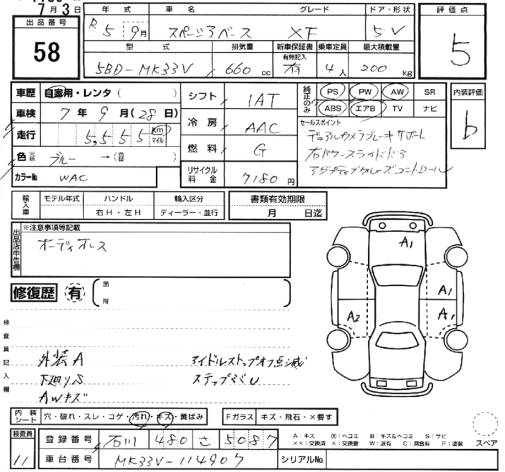 7月3日
出品番号
58
年式 車名 グレード ドア・形状
R5 9月 スペーシアベース XF 5V
型式 排気量 新車保証書 乗車定員 最大積載量
5BD-MK33V 660cc 有 4人 200kg
評価点
5
車歴 自家用・レンタ( )
車検 7年9月(28日)
走行 5,555 km マイル
色 ブルー →( )
カラーNo WAC
シフト 1AT
冷房 AAC
燃料 G
リサイクル料金 7180円
純正のみ
PS PW AW SR
ABS エアB TV ナビ
内装評価
b
セールスポイント
デュアルカメラブレーキサポート
右パワースライドドア
アダプティブクルーズコントロール
輸入車 モデル年式 ハンドル 輸入区分
右H・左H ディーラー・並行
書類有効期限
月 日迄
出品店申告欄
※注意事項等記載
オーディオレス
修復歴 有 ( 箇所 )
検査員記入欄
外装A
下廻りS
AWキズ
アイドルストップオフ点滅
A1
A1
A2
A1
内装シート 穴・破れ・スレ・コゲ・汚れ・キズ・黄ばみ
Fガラス キズ・飛石・×要す
検査員
11
登録番号 石川 480 さ 5087
車台番号 MK33V-114907
シリアルNo
スペア